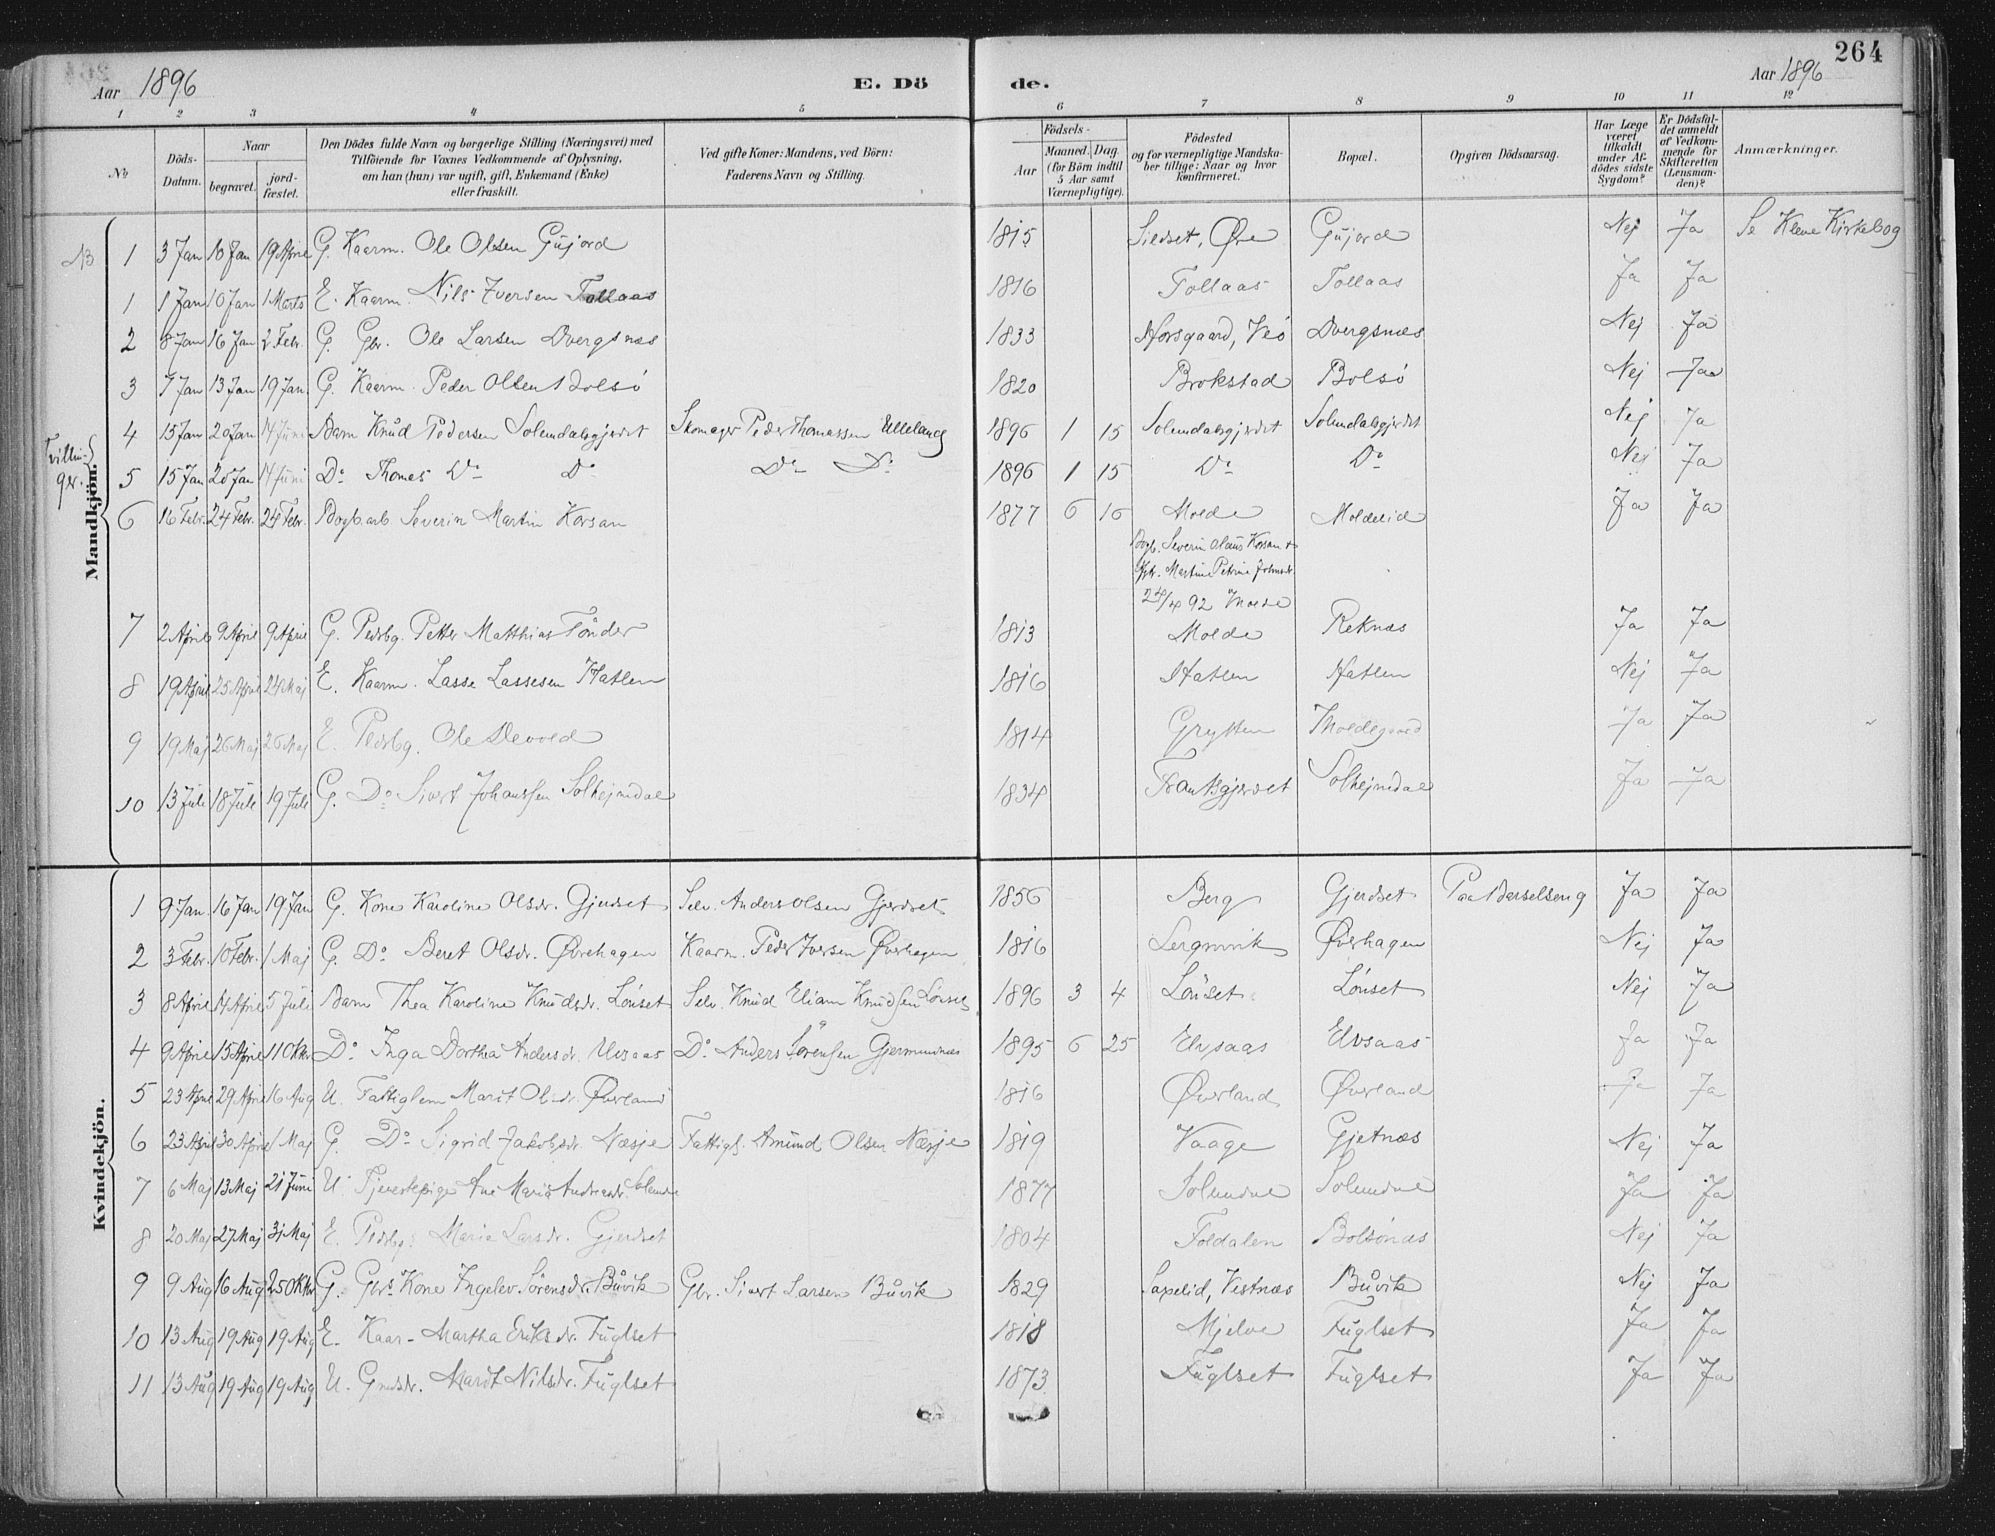 264
Aar 1896 E. Dö
de. Aar 1896
1 2 3 4 5 6 7 8 9 10 11 12
No
Döds-Datum.
Naar
begravet.
jord-fæstet.
Den Dödes fulde Navn og borgerlige Stilling (Næringsvei) med
Tilföiende for Voxnes Vedkommende af Oplysning,
om han (hun) var ugift, gift, Enkemand (Enke)
eller fraskilt.
Ved gifte Koner: Mandens, ved Börn:
Faderens Navn og Stilling.
Födsels-
Aar
Maaned. Dag.
(for Börn indtil
5 Aar samt
Værnepligtige).
Födested
og for værnepligtige Mandska-
ber tillige: Naar og hvor
konfirmeret.
Bopæl.
Opgiven Dödsaarsag.
Har Læge
været
tilkaldt
under Af-
dödes sidste
Sygdom?
Er Dödsfal-
det anmeldt
af Vedkom-
mende for
Skifteretten
(Lensman-
den)?
Anmærkninger.
Mandkjön.
NB 1 3 Jan 10 Jan 19 April G. Kaarm. Ole Olsen Gujord 1815 Øre Gujord Nej Ja Se Kleve Kirkebog
1 1 Jan 10 Jan 1 Marts E. Kaarm. Nils Iversen Tollaas 1816 Tollaas Tollaas Ja Ja
2 8 Jan 16 Jan 2 Febr. G. Gbr. Ole Larsen Dvergsnæs 1833 Horsgaard, Veö Dvergsnæs Nej Ja
3 7 Jan 13 Jan 19 Jan G. Kaarm. Peder Olsen Bolsö 1820 Brokstad Bolsö Nej Ja
4 15 Jan 20 Jan 14 Juni Barn Knud Pedersen Solemdalsgjerdet Skomager Peder Thomassen Ulleland 1896 1 15 Solemdalsgjerdet Solemdalsgjerdet Nej Ja
Tvillin-
ger. 5 15 Jan 20 Jan 14 Juni Do Thomas Do Do Do Do 1896 1 15 Do Do Nej Ja
6 16 Febr. 24 Febr. 24 Febr. Bogb.arb. Severin Martin Korsan 1877 6 16 Molde Moldelid Ja Ja
Bogb. Severin Olaus Korsan &
Martine Petrine Johnsdr.
24/4 92 Molde
7 2 April 9 April 9 April G. Pedsbg. Petter Matthias Tönder 1813 Molde Reknæs Ja Ja
8 19 April 25 April 24 Maj E. Kaarm. Lasse Lassesen Hatlen 1816 Hatlen Hatlen Nej Ja
9 19 Maj 26 Maj 26 Maj E. Pedsbg. Ole Devold 1814 Grytten Moldegaard Ja Ja
10 13 Juli 18 Juli 19 Juli G. Do Sivert Johanssen Solhejmdal 1834 Frantsgjerdet Solhejmdal Ja Ja
Kvindekjön.
1 9 Jan. 16 Jan 19 Jan G. Kone Karoline Olsdr. Gjerdset Selv. Anders Olsen Gjerdset 1856 Berg Gjerdset Paa Barselseng Ja Ja
2 3 Febr. 10 Febr. 1 Maj G. Do Beret Olsdr. Øvrehagen Kaarm. Peder Iversen Øverhagen 1816 Lergrovik Øverhagen Nej Ja
3 8 April 14 April 5 Juli Barn Thea Karoline Knudsdr. Lönset Selv. Knud Eliam Knudsen Lönset 1896 3 4 Lönset Lönset Nej Ja
4 9 April 15 April 11 Oktr. Do Inga Dorthea Andersdr. Elvsaas Do Anders Sörensen Gjermundnæs 1895 6 25 Elvsaas Elvsaas Ja Ja
5 23 April 29 April 16 Aug U. Fattiglem Marit Olsdr. Øverland 1816 Øverland Øverland Ja Ja
6 23 April 30 April 1 Maj G. Do Sigrid Jakobsdr. Næsje Fattigl. Amund Olsen Næsje 1819 Vaage Gjetnæs Nej Ja
7 6 Maj 13 Maj 21 Juni U. Tjenestepige Ane Maria Andreasdr. Solemdal 1877 Solemdal Solemdal Ja Ja
8 20 Maj 27 Maj 31 Maj E. Pedsbg. Marie Larsdr. Gjerdset 1804 Foldalen Bolsönæs Nej Ja
9 9 Aug 16 Aug 25 Oktr G. Gbrs Kone Ingelev Sörensdr. Buvik Gbr. Sivert Larsen Buvik 1829 Saxelid, Vestnæs Buvik Nej Ja
10 13 Aug 19 Aug 19 Aug E. Kaar- Martha Eriksdr. Fuglset 1818 Mjelve Fuglset Ja Ja
11 13 Aug 19 Aug 19 Aug U. Gmdsdr. Marit Nilsdr. Fuglset 1873 Fuglset Fuglset Ja Ja